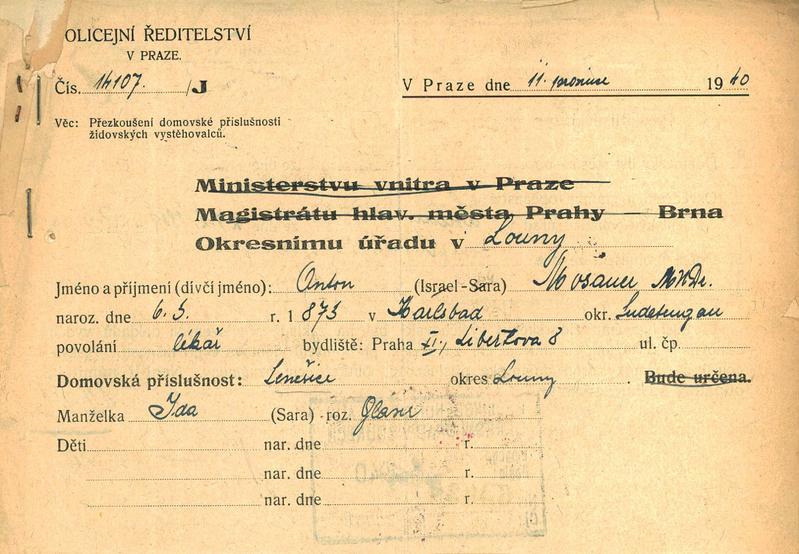 OLICEJNÍ ŘEDITELSTVÍ
V PRAZE.
Čís. 14107. /J
V Praze dne 11. prosince 1940
Věc: Přezkoušení domovské příslušnosti
židovských vystěhovalců.
Ministerstvu vnitra v Praze
Magistrátu hlav. města Prahy — Brna
Okresnímu úřadu v Louny
Jméno a příjmení (dívčí jméno): Anton (Israel-Sara) Mosauer MUDr.
naroz. dne 6. 5. r. 1873 v Karlsbad okr. Sudetengau
povolání lékař bydliště: Praha XI., Libertova 8 ul. čp.
Domovská příslušnost: Lenešice okres Louny . Bude určena.
Manželka Ida (Sara) roz. Glaser
Děti nar. dne r.
nar. dne r.
nar. dne r.